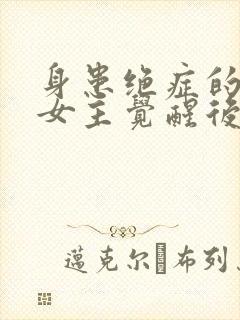 身患绝症的
女主覺醒後
邁克尔·布列